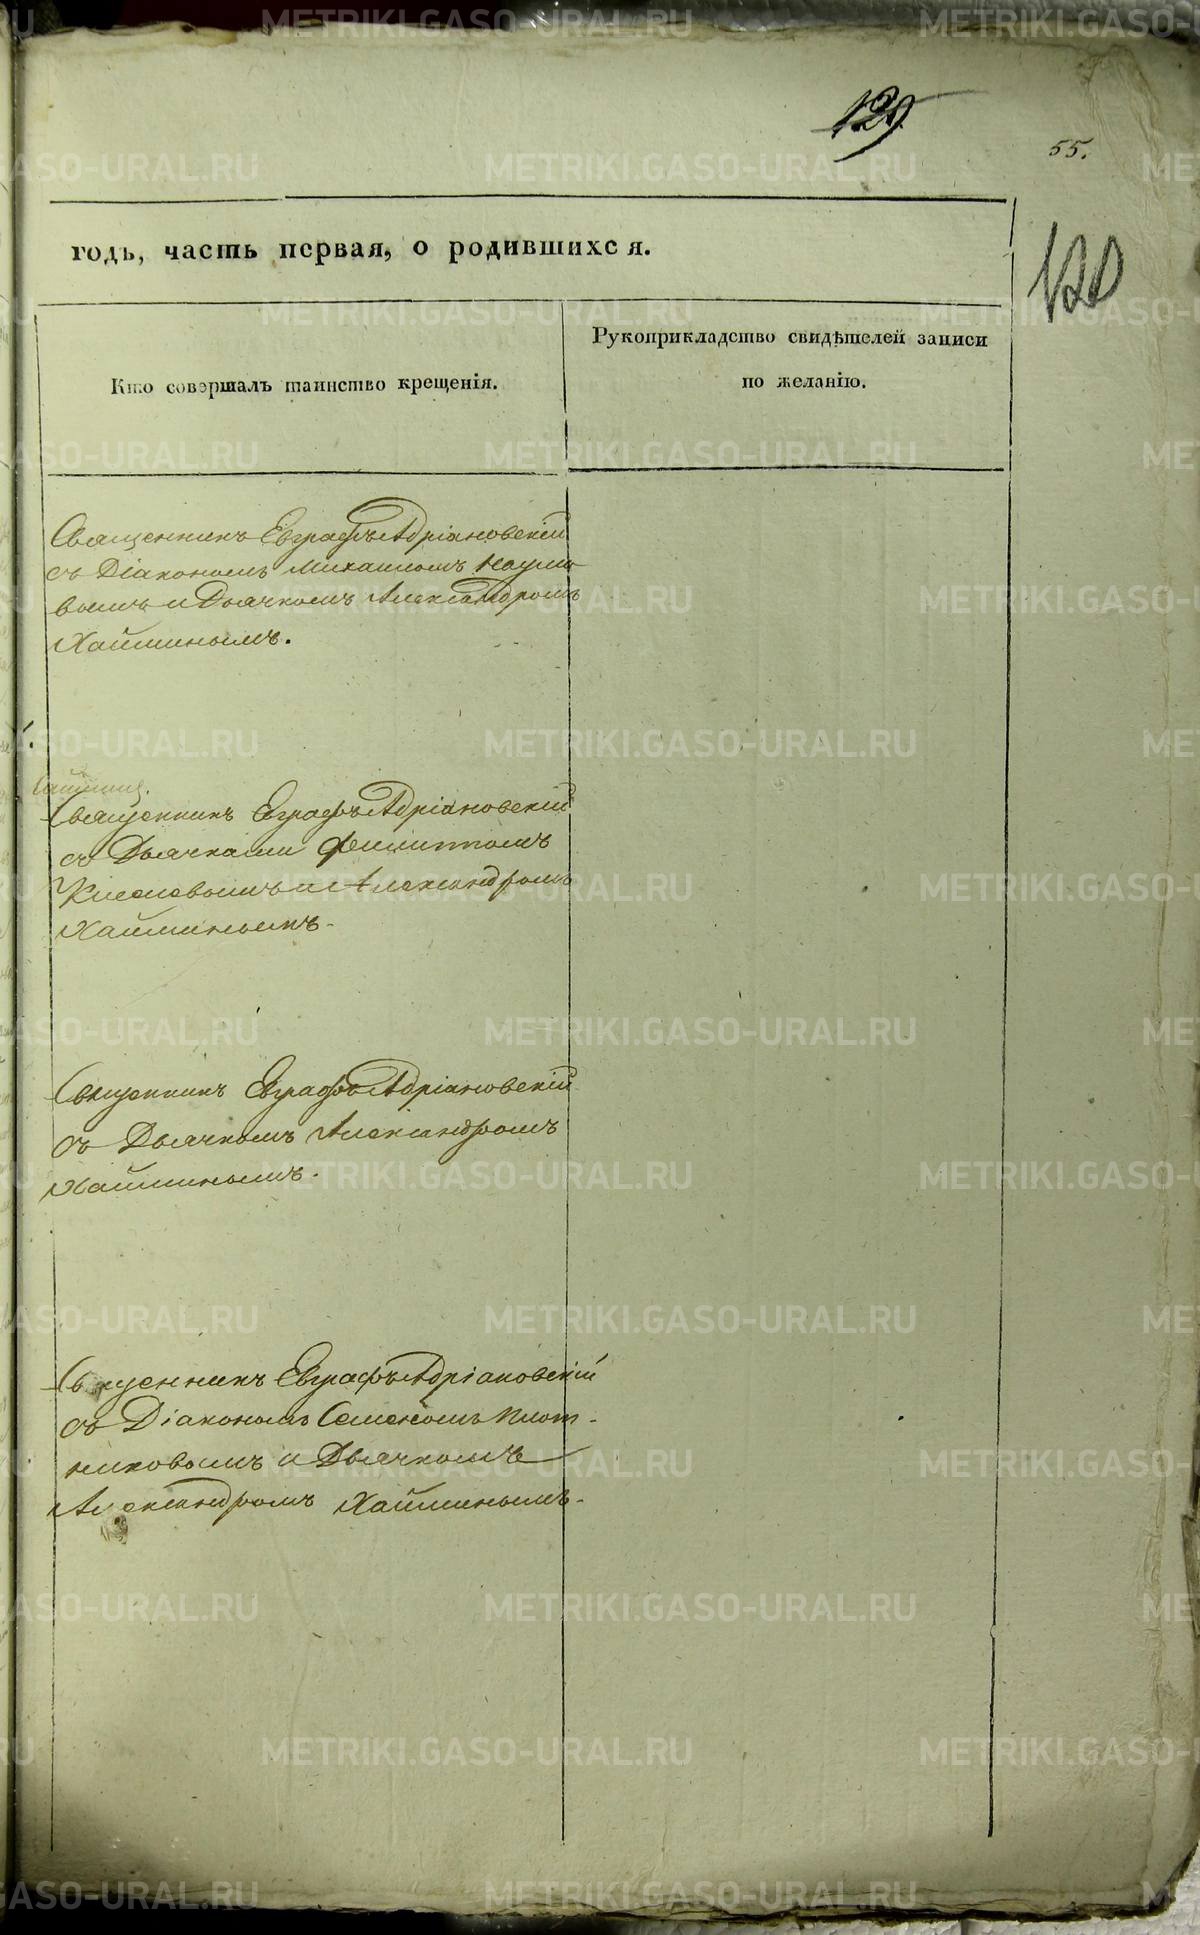 129
55.
120
годъ, часть первая, о родившихся.
Кто совершалъ таинство крещенія.
Рукоприкладство свидѣтелей записи
по желанію.
Священникъ Евграфъ Адріановскій
съ Діакономъ Михаиломъ Наумо
вымъ и Дьячкомъ Александромъ
Хайминымъ.
Священникъ Евграфъ Адріановскій
съ Дьячками Филиппомъ
Киселевымъ и Александромъ
Хайминымъ.
Священникъ Евграфъ Адріановскій
съ Дьячкомъ Александромъ
Хайминымъ.
Священникъ Евграфъ Адріановскій
съ Діакономъ Семеномъ Плот-
никовымъ и Дьячкомъ
Александромъ Хайминымъ.
METRIKI.GASO-URAL.RU